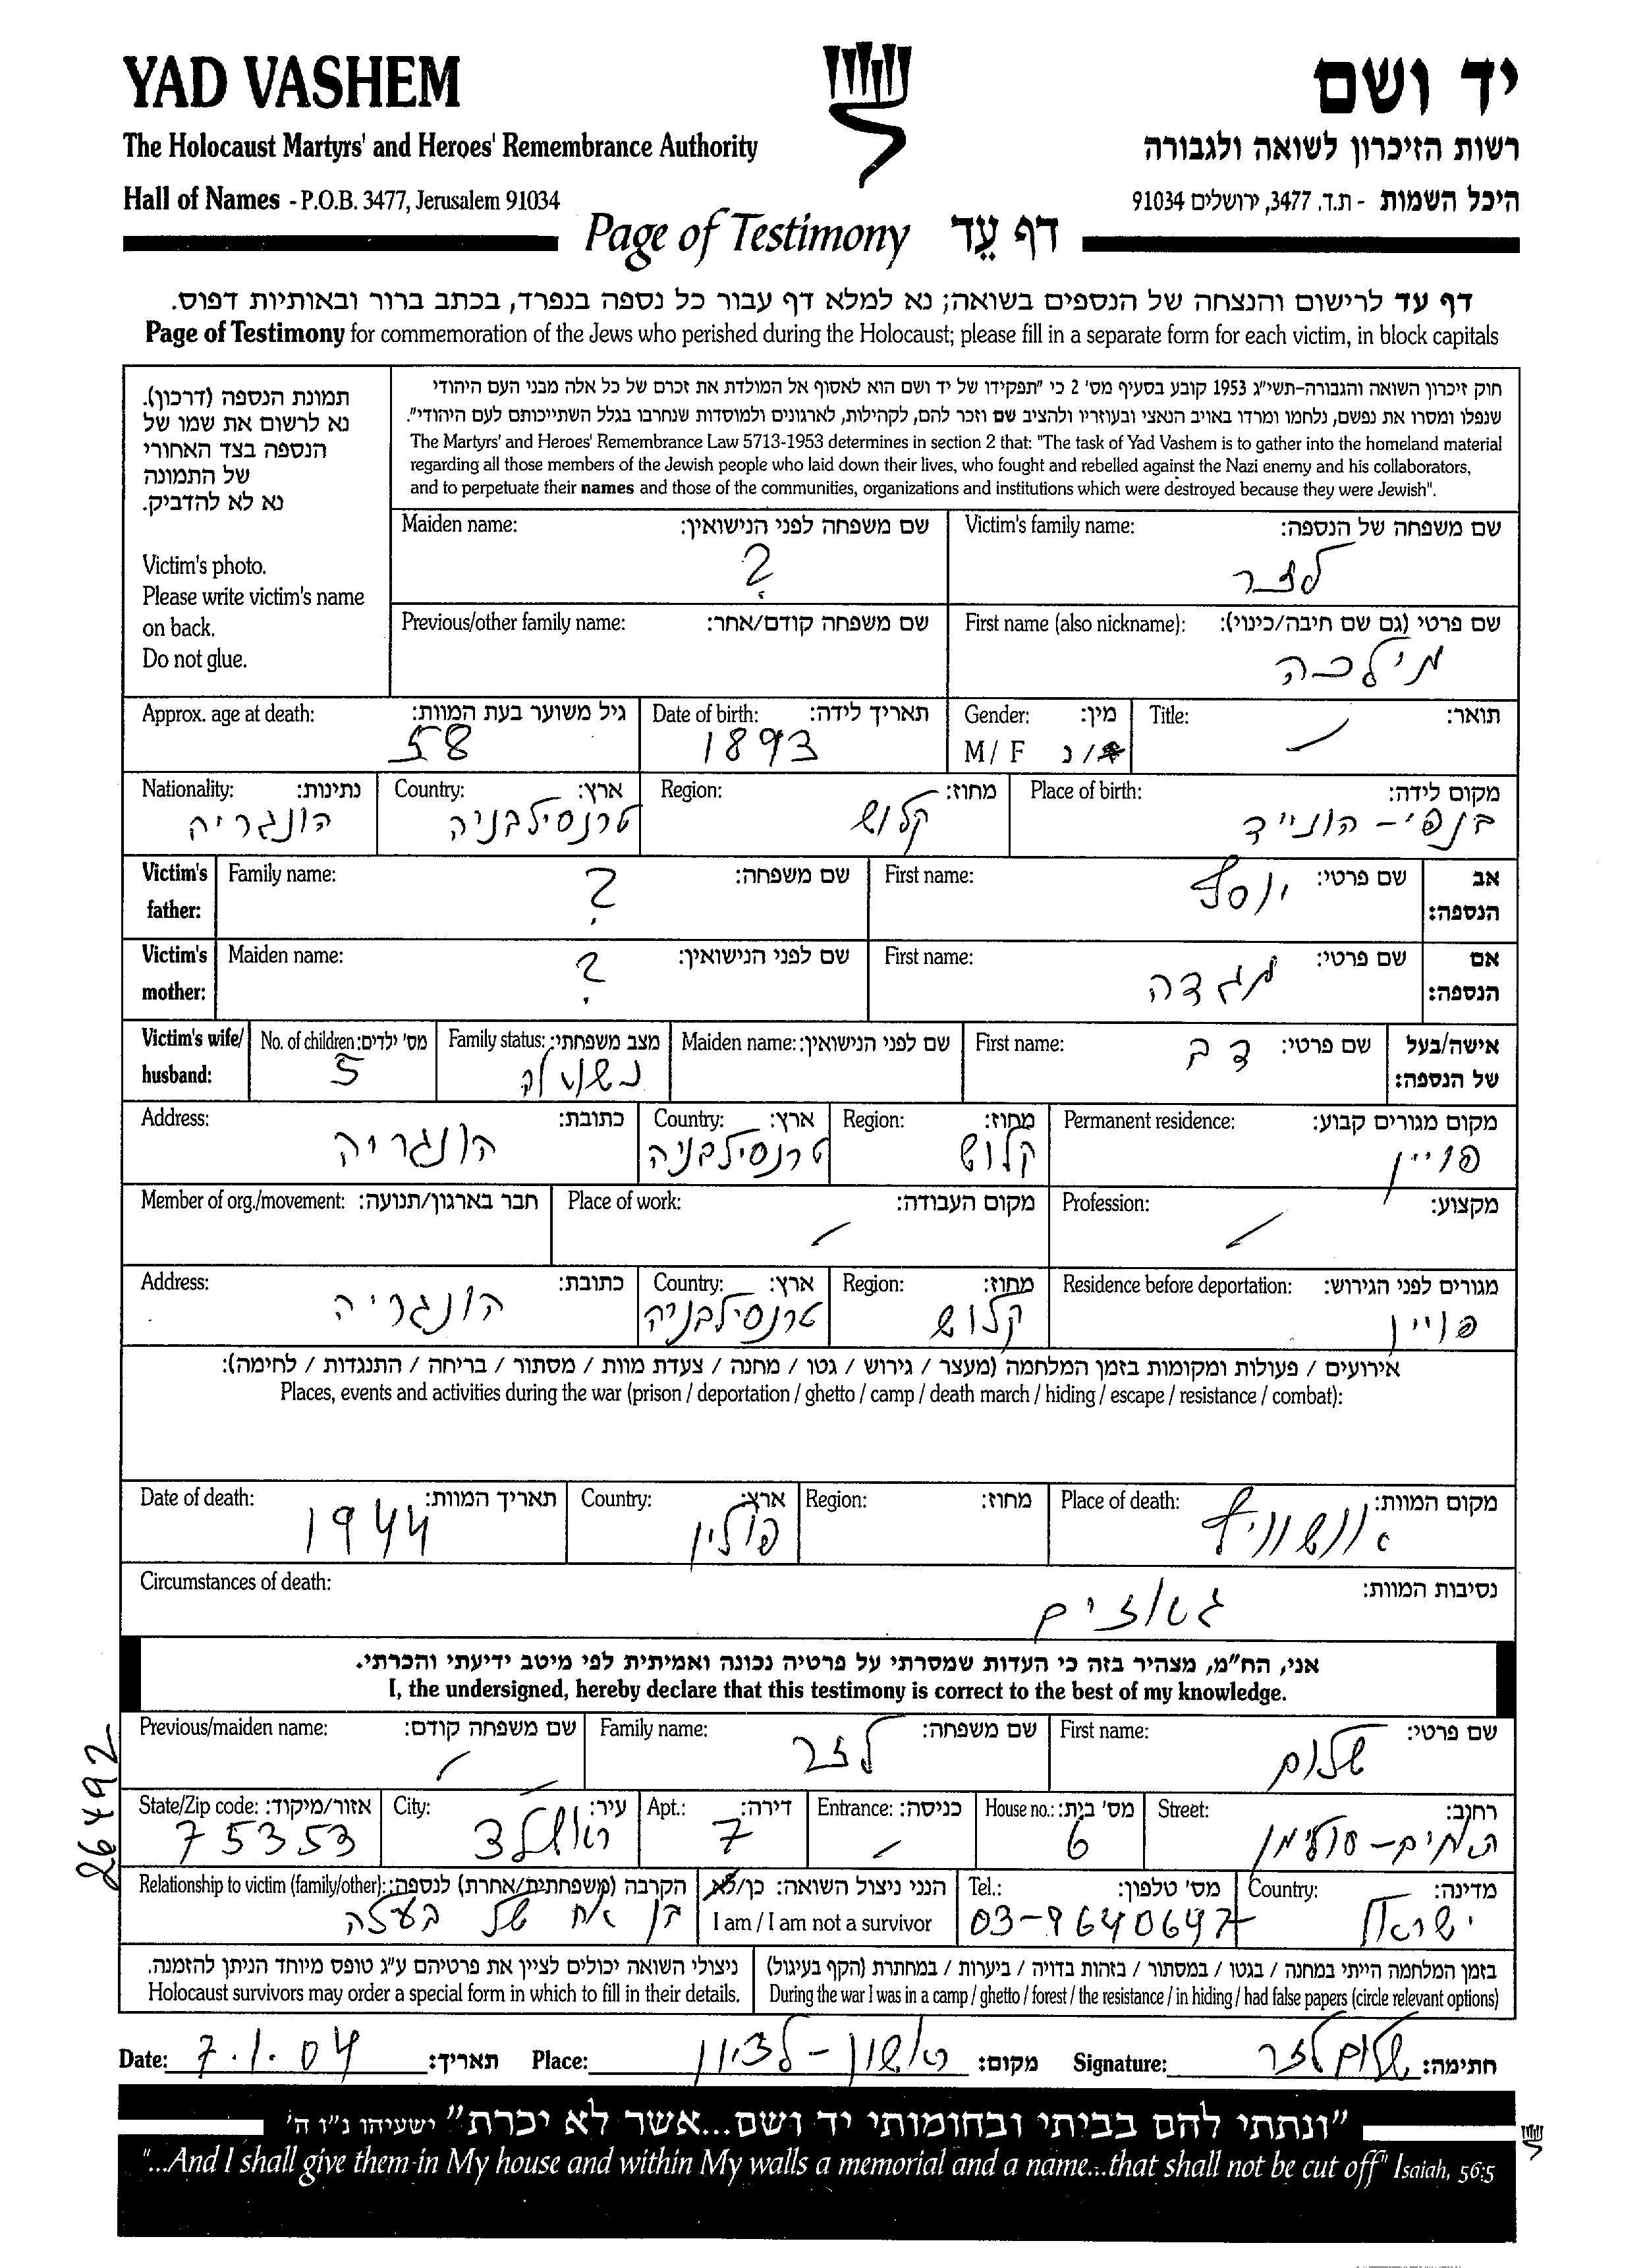 YAD VASHEM
יד ושם
The Holocaust Martyrs' and Heroes' Remembrance Authority
רשות הזיכרון לשואה ולגבורה
Hall of Names - P.O.B. 3477, Jerusalem 91034
היכל השמות - ת.ד. 3477, ירושלים 91034
Page of Testimony דף עֵד
דף עד לרישום והנצחה של הנספים בשואה; נא למלא דף עבור כל נספה בנפרד, בכתב ברור ובאותיות דפוס.
Page of Testimony for commemoration of the Jews who perished during the Holocaust; please fill in a separate form for each victim, in block capitals
תמונת הנספה (דרכון).
נא לרשום את שמו של
הנספה בצד האחורי
של התמונה
נא לא להדביק.
Victim's photo.
Please write victim's name
on back.
Do not glue.
חוק זיכרון השואה והגבורה-תשי"ג 1953 קובע בסעיף מס' 2 כי "תפקידו של יד ושם הוא לאסוף אל המולדת את זכרם של כל אלה מבני העם היהודי
שנפלו ומסרו את נפשם, נלחמו ומרדו באויב הנאצי ובעוזריו ולהציב שם וזכר להם, לקהילות, לארגונים ולמוסדות שנחרבו בגלל השתייכותם לעם היהודי".
The Martyrs' and Heroes' Remembrance Law 5713-1953 determines in section 2 that: "The task of Yad Vashem is to gather into the homeland material
regarding all those members of the Jewish people who laid down their lives, who fought and rebelled against the Nazi enemy and his collaborators,
and to perpetuate their names and those of the communities, organizations and institutions which were destroyed because they were Jewish".
Victim's family name: שם משפחה של הנספה:
לזר
Maiden name: שם משפחה לפני הנישואין:
?
First name (also nickname): שם פרטי (גם שם חיבה/כינוי):
מילכה
Previous/other family name: שם משפחה קודם/אחר:
Title: תואר:
Gender: מין:
M / F ז/נ
Date of birth: תאריך לידה:
1893
Approx. age at death: גיל משוער בעת המוות:
58
Place of birth: מקום לידה:
בנפי-הונייד
Region: מחוז:
קלוש
Country: ארץ:
טרנסילבניה
Nationality: נתינות:
הונגריה
Victim's father: אב הנספה:
First name: שם פרטי:
יוסף
Family name: שם משפחה:
?
Victim's mother: אם הנספה:
First name: שם פרטי:
מגדה
Maiden name: שם לפני הנישואין:
?
Victim's wife/ husband: אישה/בעל של הנספה:
First name: שם פרטי:
דב
Maiden name: שם לפני הנישואין:
Family status: מצב משפחתי:
נשואה
No. of children: מס' ילדים:
5
Permanent residence: מקום מגורים קבוע:
פויין
Region: מחוז:
קלוש
Country: ארץ:
טרנסילבניה
Address: כתובת:
הונגריה
Profession: מקצוע:
Place of work: מקום העבודה:
Member of org./movement: חבר בארגון/תנועה:
Residence before deportation: מגורים לפני הגירוש:
פויין
Region: מחוז:
קלוש
Country: ארץ:
טרנסילבניה
Address: כתובת:
הונגריה
אירועים / פעולות ומקומות בזמן המלחמה (מעצר / גירוש / גטו / מחנה / צעדת מוות / מסתור / בריחה / התנגדות / לחימה):
Places, events and activities during the war (prison / deportation / ghetto / camp / death march / hiding / escape / resistance / combat):
Place of death: מקום המוות:
אוושוויץ
Region: מחוז:
Country: ארץ:
פולין
Date of death: תאריך המוות:
1944
Circumstances of death: נסיבות המוות:
גאזים
אני, הח"מ, מצהיר בזה כי העדות שמסרתי על פרטיה נכונה ואמיתית לפי מיטב ידיעתי והכרתי.
I, the undersigned, hereby declare that this testimony is correct to the best of my knowledge.
First name: שם פרטי:
שלום
Family name: שם משפחה:
לזר
Previous/maiden name: שם משפחה קודם:
Street: רחוב:
האחים-סולימן
House no.: מס' בית:
6
Entrance: כניסה:
Apt.: דירה:
7
City: עיר:
ראשלצ
State/Zip code: אזור/מיקוד:
75353
Country: מדינה:
ישראל
Tel.: מס' טלפון:
03-9640697
הנני ניצול השואה: כן/לא
I am / I am not a survivor
Relationship to victim (family/other): הקרבה (משפחתית/אחרת) לנספה:
בן אח של בעלה
בזמן המלחמה הייתי במחנה / בגטו / במסתור / בזהות בדויה / ביערות / במחתרת (הקף בעיגול)
During the war I was in a camp / ghetto / forest / the resistance / in hiding / had false papers (circle relevant options)
ניצולי השואה יכולים לציין את פרטיהם ע"ג טופס מיוחד הניתן להזמנה.
Holocaust survivors may order a special form in which to fill in their details.
Date: 7.1.04 תאריך: Place: ראשון-לציון מקום: Signature: שלום לזר חתימה:
"ונתתי להם בביתי ובחומותי יד ושם...אשר לא יכרת" ישעיהו נ"ו ה'
"...And I shall give them in My house and within My walls a memorial and a name...that shall not be cut off" Isaiah, 56:5
26492